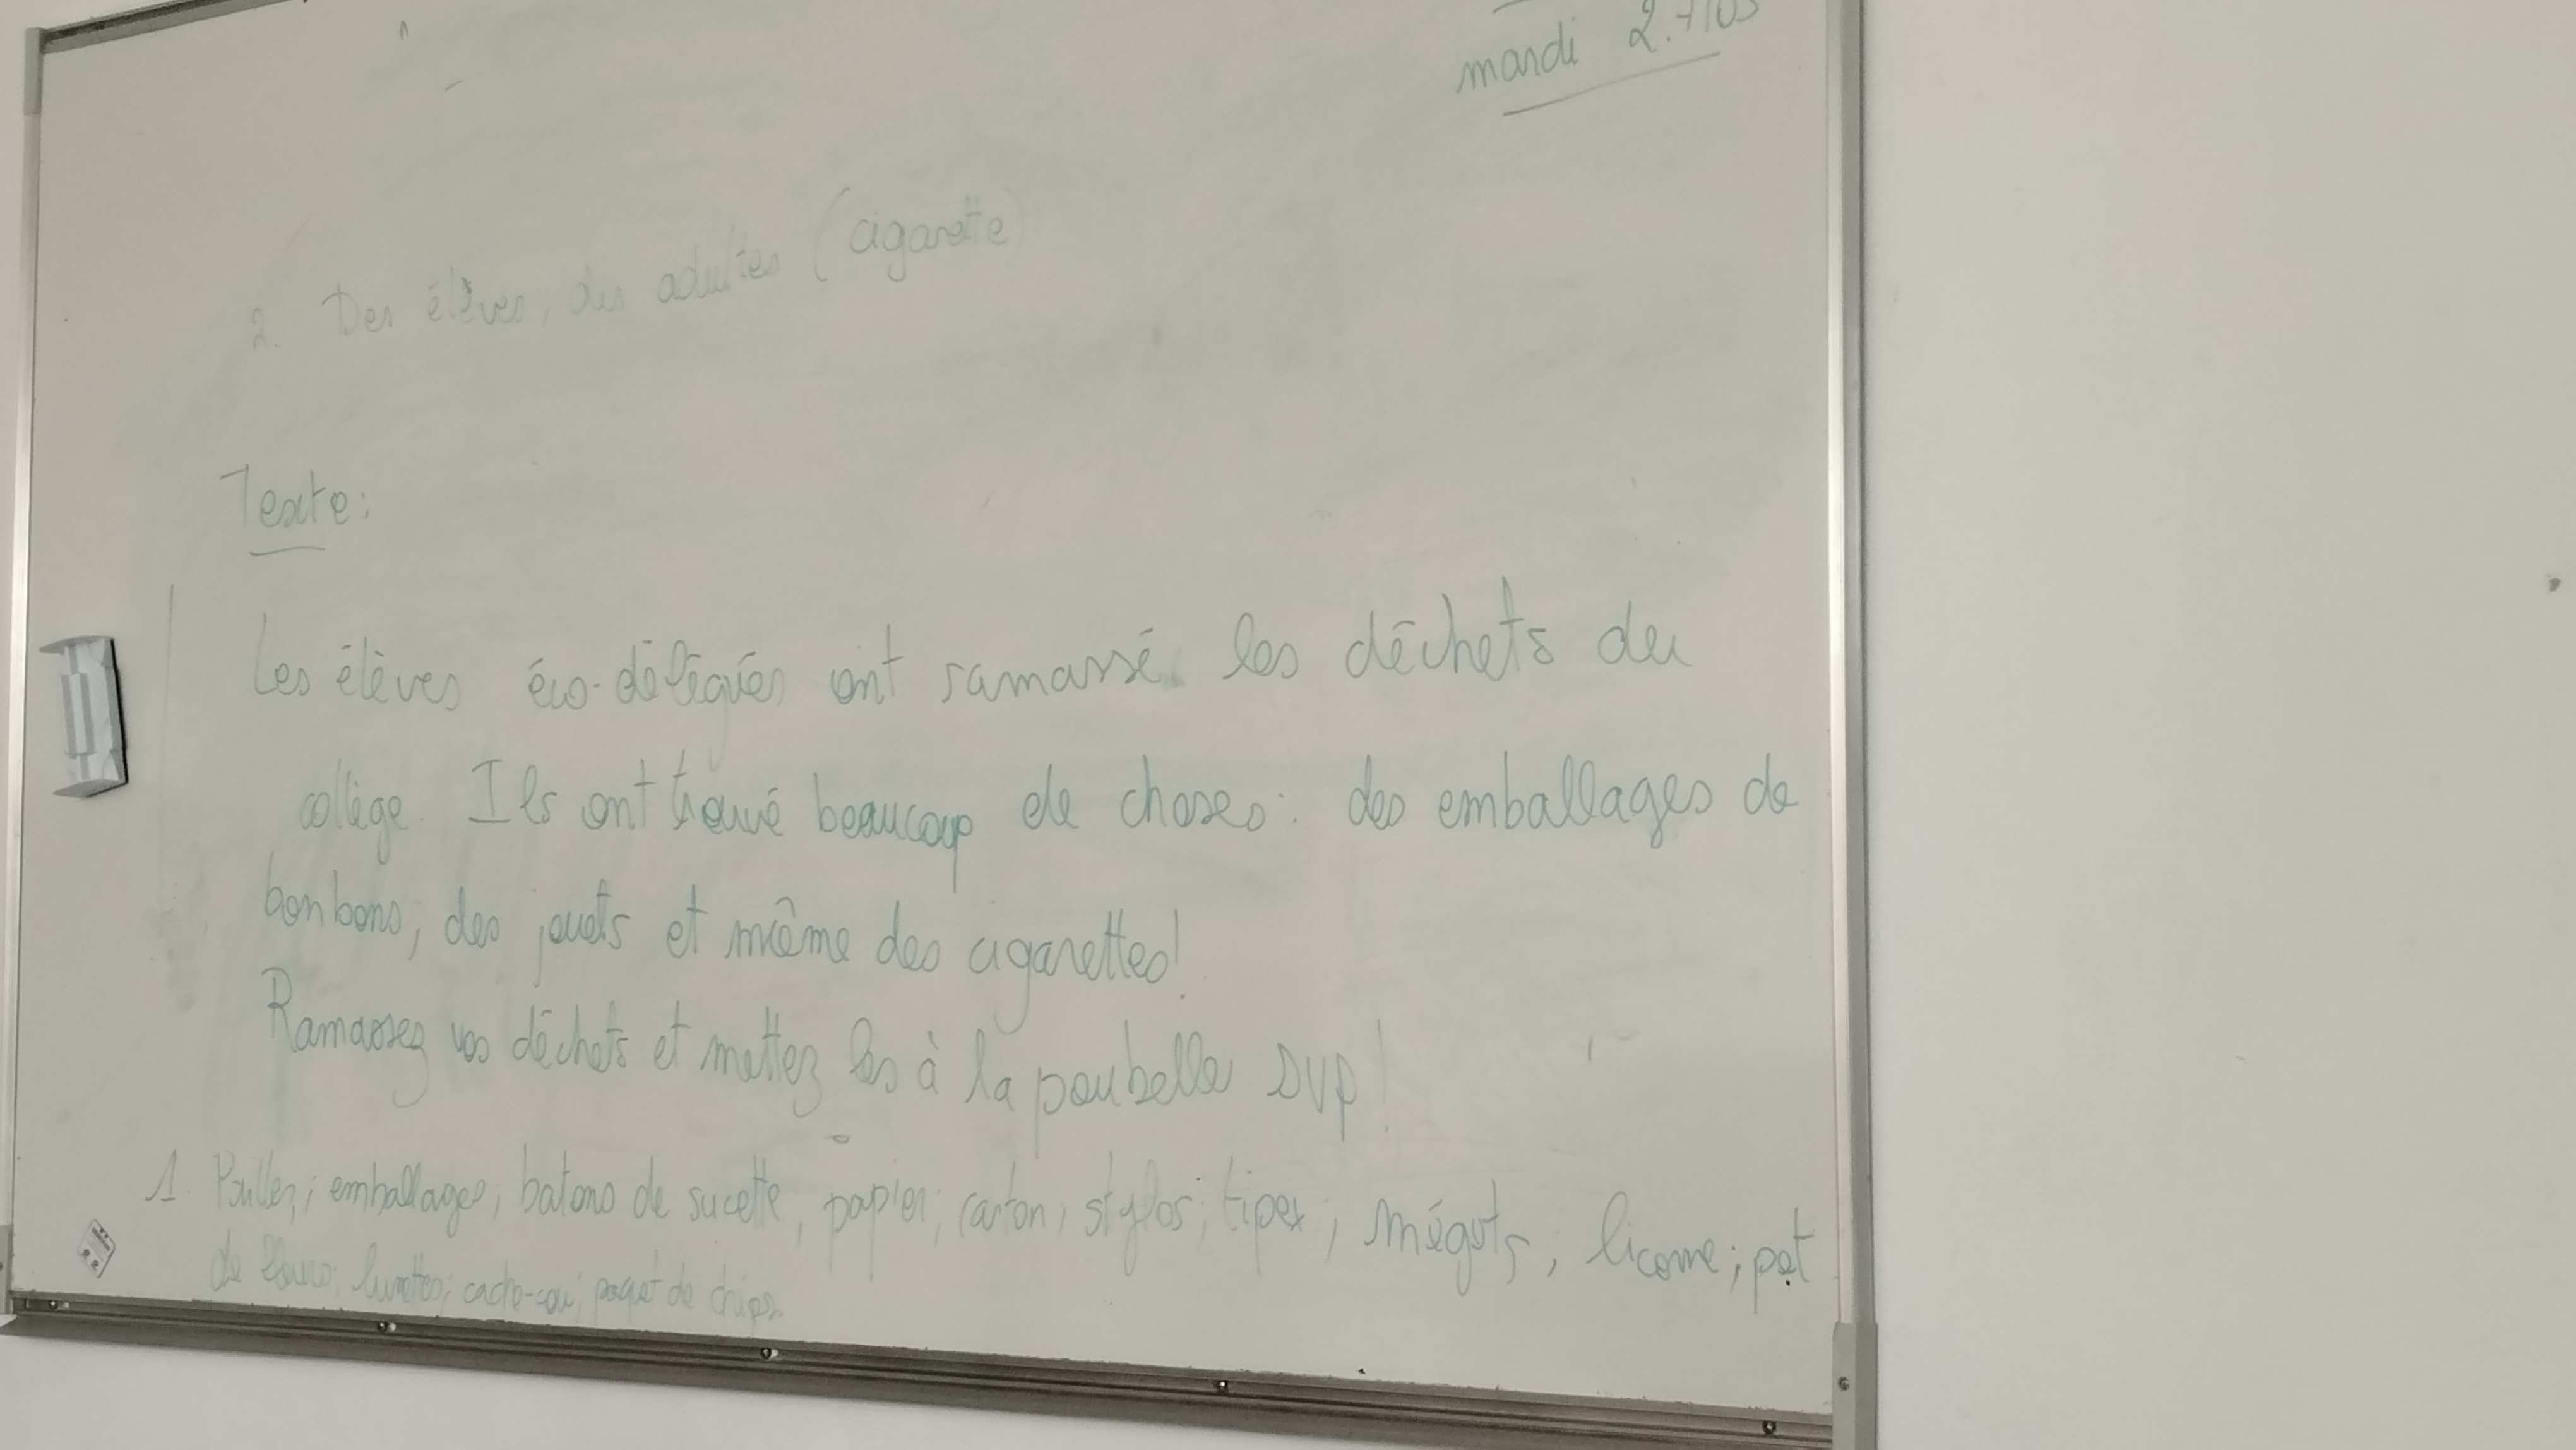 mardi
2. Des élèves, des adultes (cigarette)
Texte:
Les élèves éco-délégués ont ramassé les déchets du
collège. Ils ont trouvé beaucoup de choses: des emballages de
bonbons, des jouets et même des cigarettes!
Ramassez vos déchets et mettez les à la poubelle SVP!
1. emballages, batons de sucette, papier; carton, stylos; tipex; mégots, licorne; pot
de lunettes; cache-cou; paquet de chips